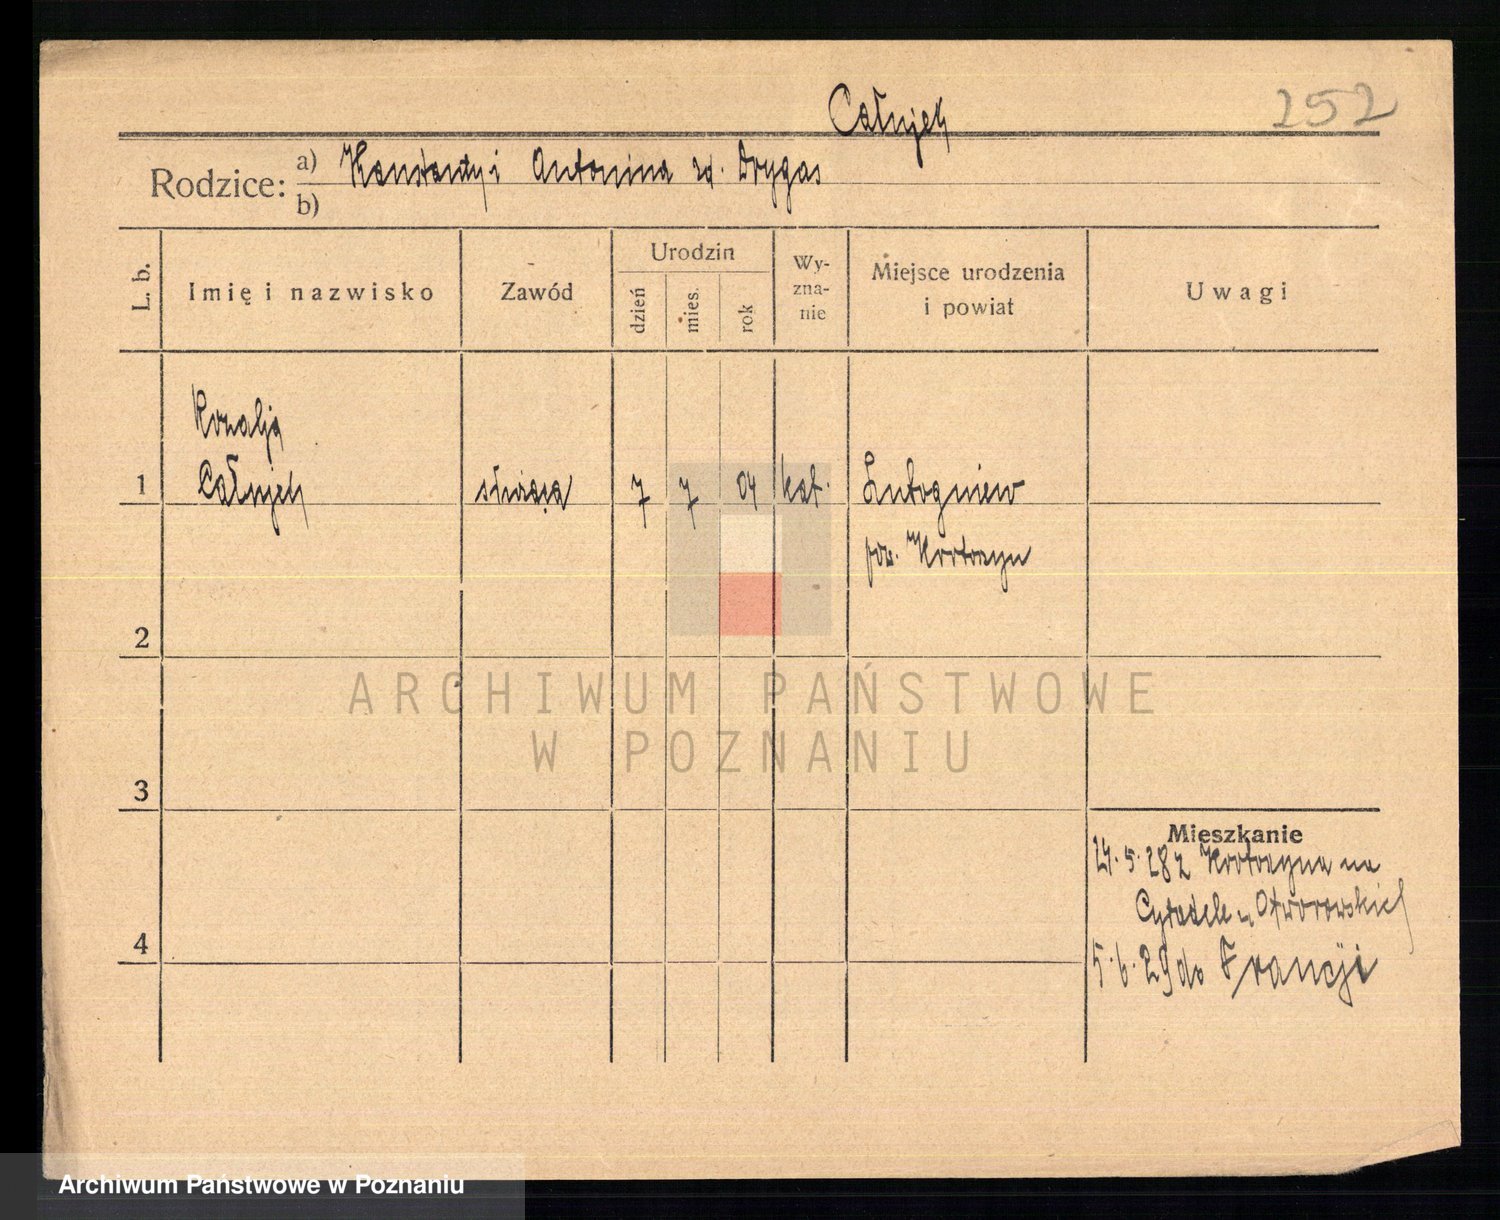 Całujek
252
Rodzice: a) Konstanty i Antonina zd. Drygas
b)
L. b.
Imię i nazwisko
Zawód
Urodzin
dzień
mies.
rok
Wy-
zna-
nie
Miejsce urodzenia
i powiat
Uwagi
Rozalja
1 Całujek służąca 7 7 04 kat. Lutogniew
pow. Krotoszyn
2
3
4
Mieszkanie
24.5.28 z Krotoszyna na
Cytadele u Otworowskich
5.6.29 do Francji
ARCHIWUM PAŃSTWOWE
W POZNANIU
Archiwum Państwowe w Poznaniu